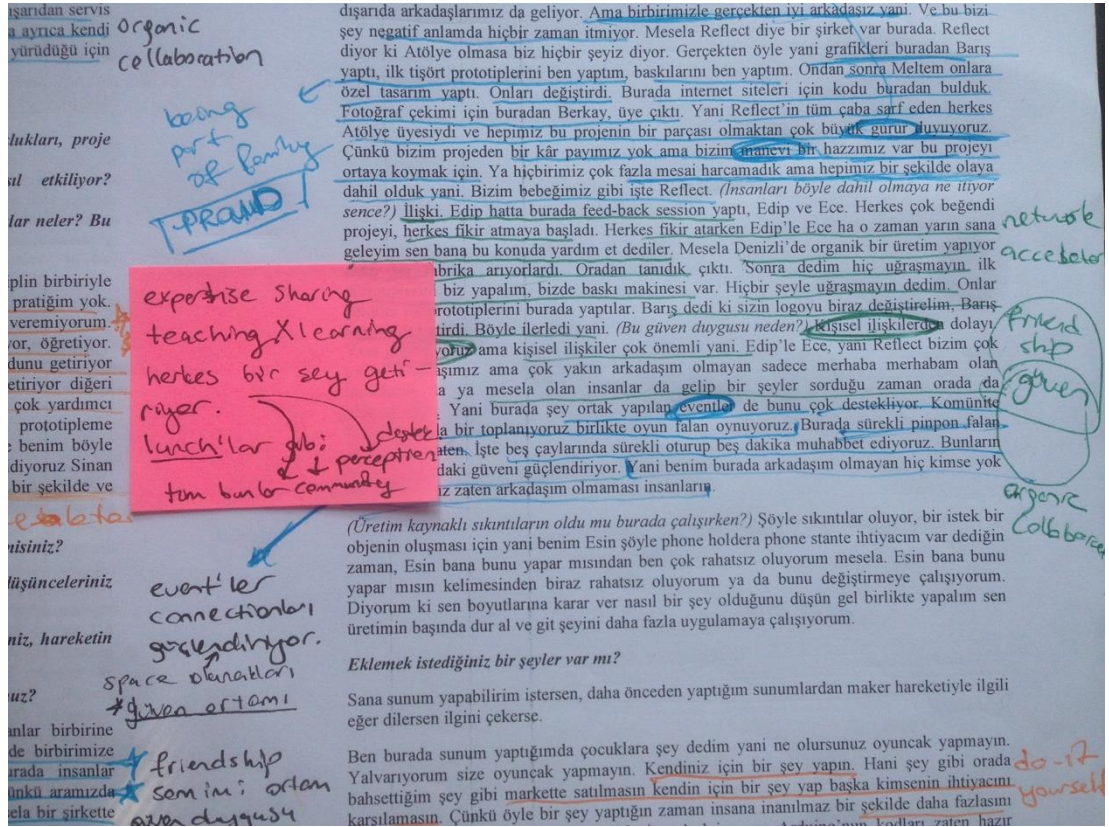 ışarıdan servis
a ayrıca kendi
yürüdüğü için
lukları, proje
ıl etkiliyor?
lar neler? Bu
iplin birbiriyle
pratiğim yok.
veremiyorum.
yor, öğretiyor.
dunu getiriyor
etiriyor diğeri
çok yardımcı
prototipleme
e benim böyle
diyoruz Sinan
bir şekilde ve
misiniz?
düşünceleriniz
niz, hareketin
uz?
anlar birbirine
de birbirimize
urada insanlar
ünkü aramızda
sela bir şirkette
organic
collaboration
being
part
of family
PROUD
expertise sharing
teaching X learning
herkes bir şey geti-
riyor.
lunch'lar gibi
destek
perception
tüm bunlar community
event'ler
connectionları
güçlendiriyor.
space olanakları
*güven ortamı
friendship
samimi ortam
güven duygusu
dışarıda arkadaşlarımız da geliyor. Ama birbirimizle gerçekten iyi arkadaşız yani. Ve bu bizi
şey negatif anlamda hiçbir zaman itmiyor. Mesela Reflect diye bir şirket var burada. Reflect
diyor ki Atölye olmasa biz hiçbir şeyiz diyor. Gerçekten öyle yani grafikleri buradan Barış
yaptı, ilk tişört prototiplerini ben yaptım, baskılarını ben yaptım. Ondan sonra Meltem onlara
özel tasarım yaptı. Onları değiştirdi. Burada internet siteleri için kodu buradan bulduk.
Fotoğraf çekimi için buradan Berkay, üye çıktı. Yani Reflect'in tüm çaba sarf eden herkes
Atölye üyesiydi ve hepimiz bu projenin bir parçası olmaktan çok büyük gurur duyuyoruz.
Çünkü bizim projeden bir kâr payımız yok ama bizim manevi bir hazzımız var bu projeyi
ortaya koymak için. Ya hiçbirimiz çok fazla mesai harcamadık ama hepimiz bir şekilde olaya
dahil olduk yani. Bizim bebeğimiz gibi işte Reflect. (İnsanları böyle dahil olmaya ne itiyor
sence?) İlişki. Edip hatta burada feed-back session yaptı, Edip ve Ece. Herkes çok beğendi
projeyi, herkes fikir atmaya başladı. Herkes fikir atarken Edip'le Ece ha o zaman yarın sana
geleyim sen bana bu konuda yardım et dediler. Mesela Denizli'de organik bir üretim yapıyor
brika arıyorlardı. Oradan tanıdık çıktı. Sonra dedim hiç uğraşmayın ilk
biz yapalım, bizde baskı makinesi var. Hiçbir şeyle uğraşmayın dedim. Onlar
prototiplerini burada yaptılar. Barış dedi ki sizin logoyu biraz değiştirelim, Barış
tirdi. Böyle ilerledi yani. (Bu güven duygusu neden?) Kişisel ilişkilerden dolayı
yoruz ama kişisel ilişkiler çok önemli yani. Edip'le Ece, yani Reflect bizim çok
aşımız ama çok yakın arkadaşım olmayan sadece merhaba merhabam olan
a ya mesela olan insanlar da gelip bir şeyler sorduğu zaman orada da
Yani burada şey ortak yapılan eventler de bunu çok destekliyor. Komünite
la bir toplanıyoruz birlikte oyun falan oynuyoruz. Burada sürekli pinpon falan
aten. İşte beş çaylarında sürekli oturup beş dakika muhabbet ediyoruz. Bunların
daki güveni güçlendiriyor. Yani benim burada arkadaşım olmayan hiç kimse yok
ız zaten arkadaşım olmaması insanların.
(Üretim kaynaklı sıkıntıların oldu mu burada çalışırken?) Şöyle sıkıntılar oluyor, bir istek bir
objenin oluşması için yani benim Esin şöyle phone holdera phone stante ihtiyacım var dediğin
zaman, Esin bana bunu yapar mısından ben çok rahatsız oluyorum mesela. Esin bana bunu
yapar mısın kelimesinden biraz rahatsız oluyorum ya da bunu değiştirmeye çalışıyorum.
Diyorum ki sen boyutlarına karar ver nasıl bir şey olduğunu düşün gel birlikte yapalım sen
üretimin başında dur al ve git şeyini daha fazla uygulamaya çalışıyorum.
Eklemek istediğiniz bir şeyler var mı?
Sana sunum yapabilirim istersen, daha önceden yaptığım sunumlardan maker hareketiyle ilgili
eğer dilersen ilgini çekerse.
Ben burada sunum yaptığımda çocuklara şey dedim yani ne olursunuz oyuncak yapmayın.
Yalvarıyorum size oyunçak yapmayın. Kendiniz için bir şey yapın. Hani şey gibi orada
bahsettiğim şey gibi markette satılmasın kendin için bir şey yap başka kimsenin ihtiyacını
karşılamasın. Çünkü öyle bir şey yaptığın zaman insana inanılmaz bir şekilde daha fazlasını
kodları zaten hazır
network
friend
ship
güven
organic
do-it
yourself